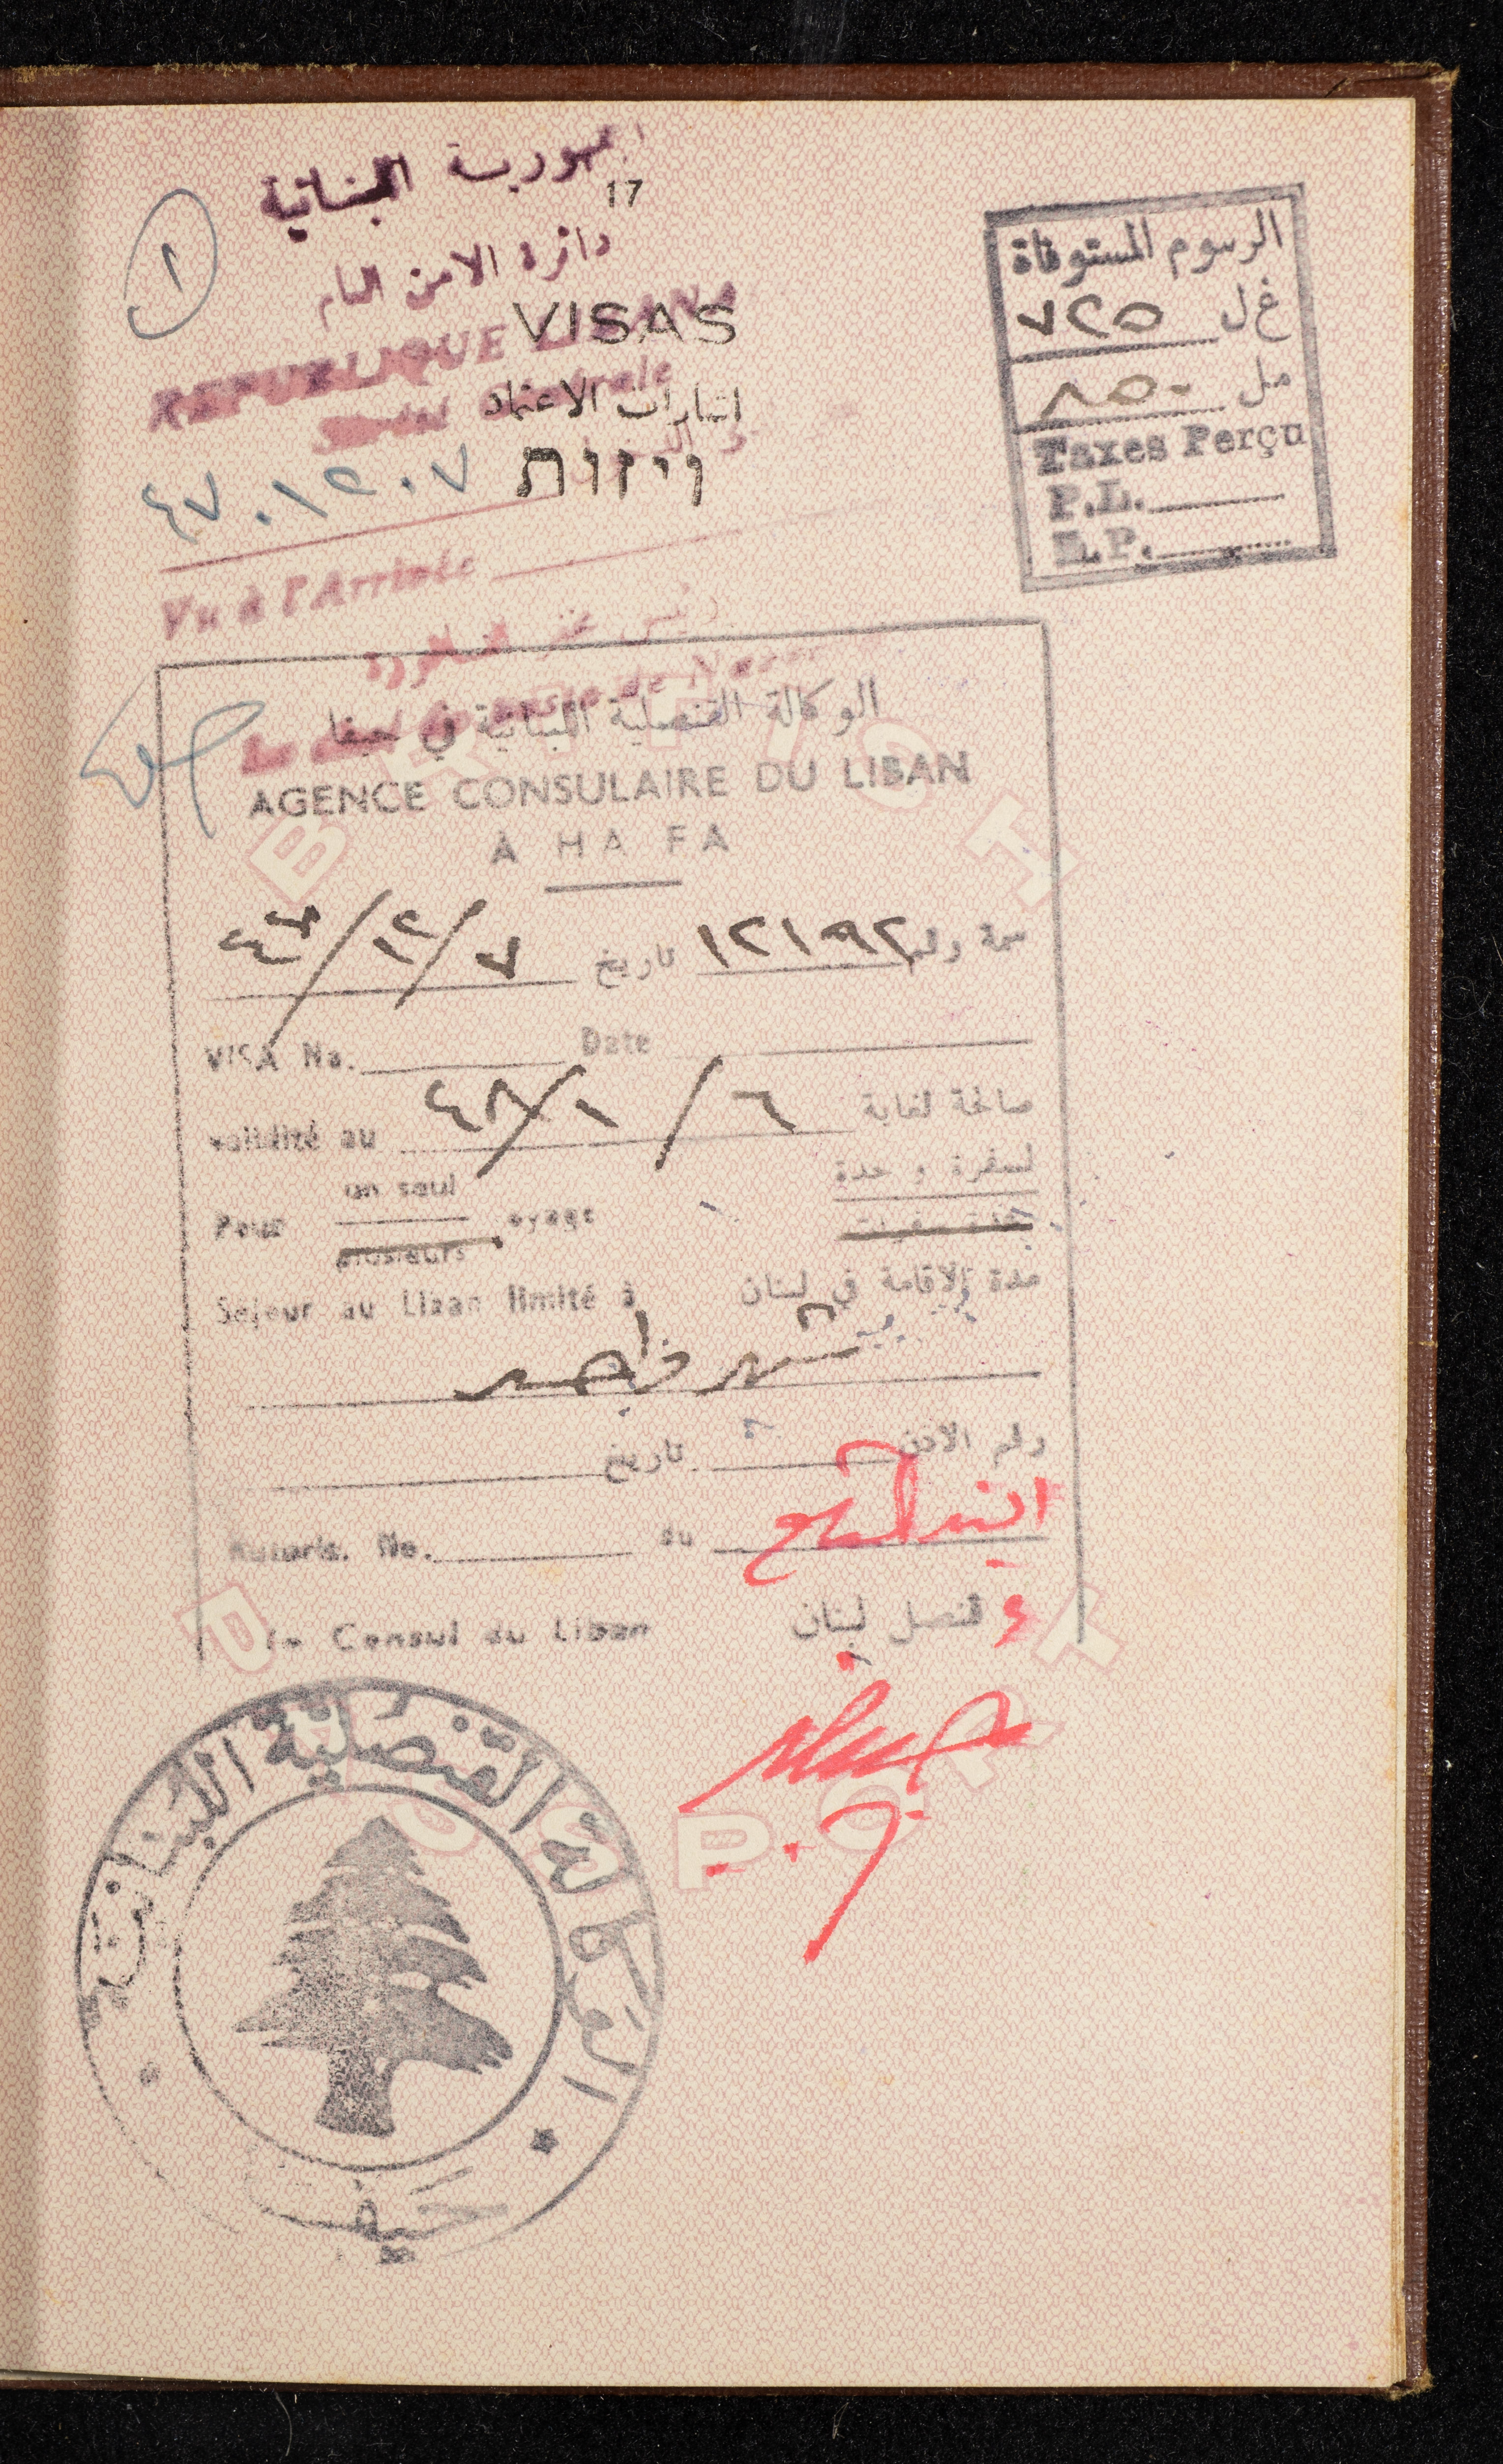 الجمهورية اللبنانية
17
دائرة الامن العام
١
VISAS
REPUBLIQUE LIBANA
Générale
اشارات الاعتماد
ויזות
٤٧.١٢.٧
Vu à l'Arrivée
رئيس مخفر الناقورة
de
الرسوم المستوفاة
غ ل ٧٢٥
مل ٨٥٠
Taxes Perçu
P.L.
M.P.
الوكالة القنصلية اللبنانية في حيفا
AGENCE CONSULAIRE DU LIBAN
À HA FA
سمة رقم ١٢١٩٢ تاريخ ٧/١٢/٤٧
VISA No. Date
صالحة لغاية ٦/١/٤٨
validité au
لسفرة و حدة
un seul
Pour voyage
عدة سفرات
plusieurs
مدة الاقامة في لبنان
Séjour au Liban limité à
شهر واحد
رقم الاذن تاريخ
Autoris. No. du
قنصل لبنان
Le Consul du Liban
الوكالة القنصلية اللبنانية
حيفا
BRITISH
PASSPORT